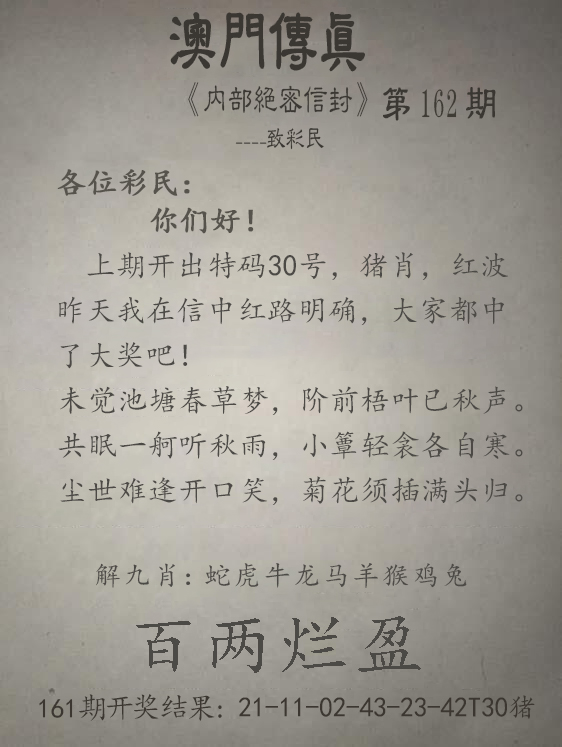 澳門傳眞
《内部絕密信封》第162期
----致彩民
各位彩民：
你们好！
上期开出特码30号，猪肖，红波
昨天我在信中红路明确，大家都中
了大奖吧！
未觉池塘春草梦，阶前梧叶已秋声。
共眠一舸听秋雨，小簟轻衾各自寒。
尘世难逢开口笑，菊花须插满头归。
解九肖：蛇虎牛龙马羊猴鸡兔
百两烂盈
161期开奖结果：21-11-02-43-23-42T30猪